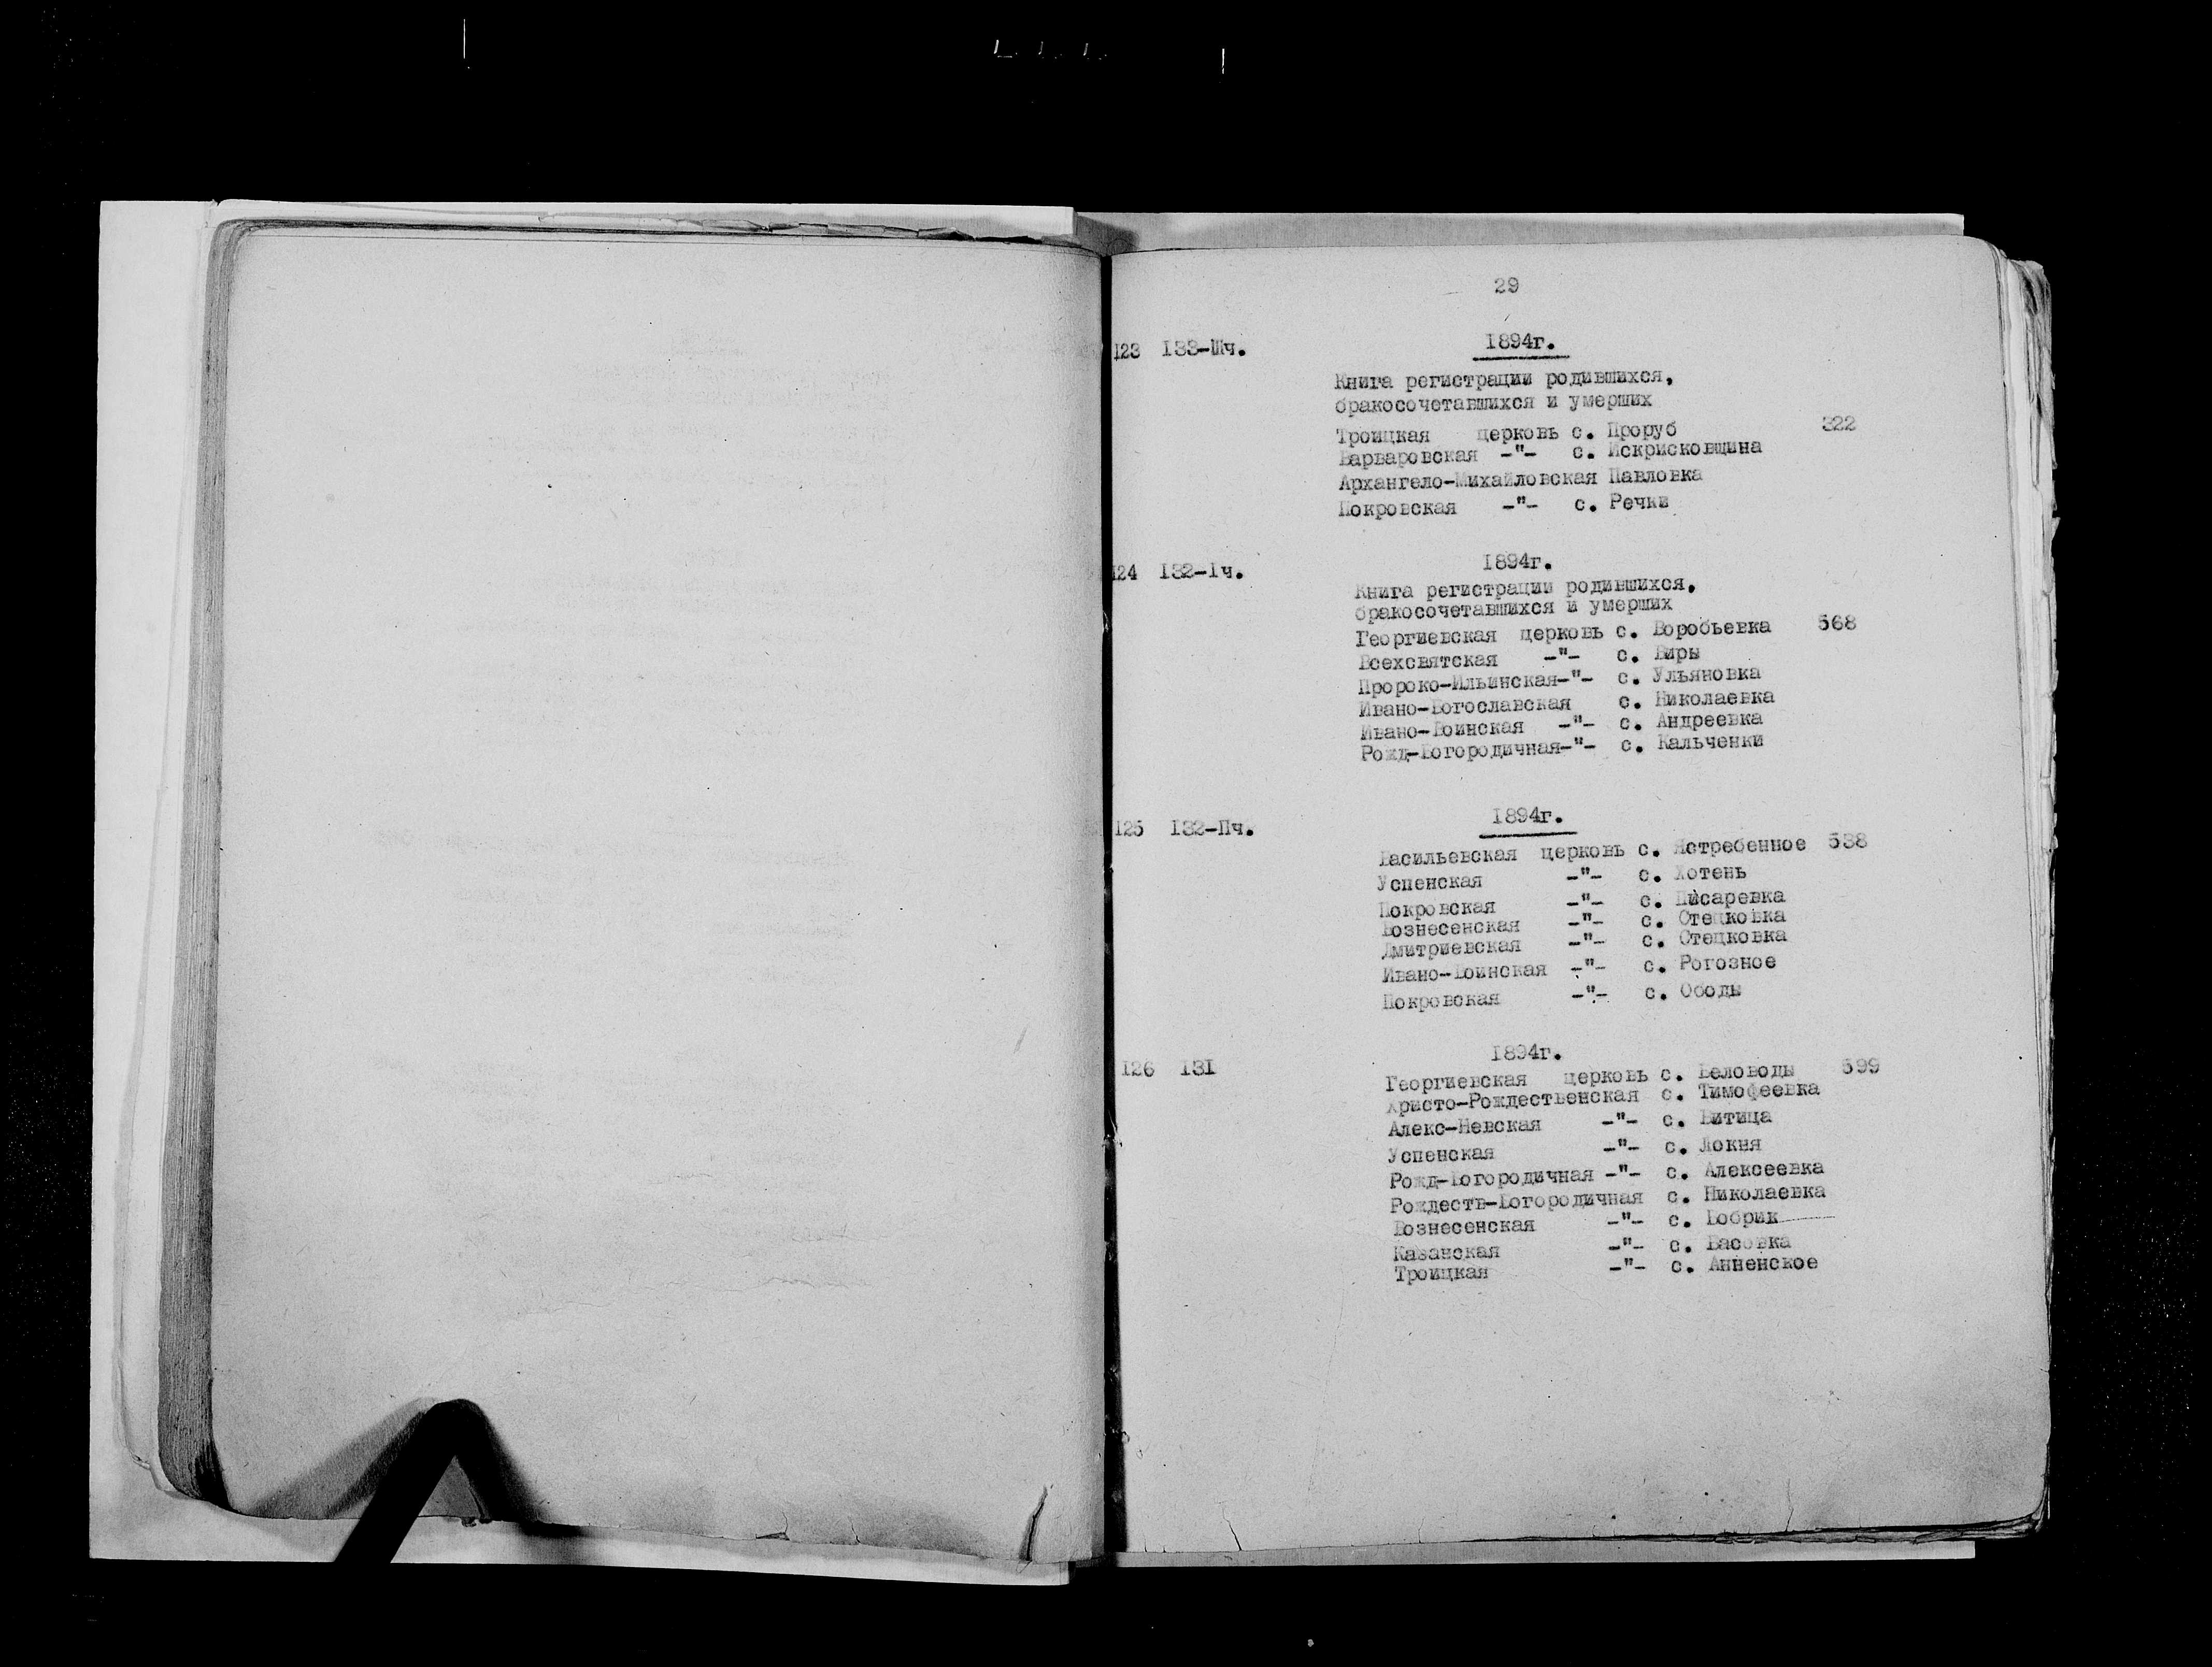 29
123 133-Шч. 1894г.
Книга регистрации родившихся,
бракосочетавшихся и умерших
Троицкая церковь с. Проруб 322
Варваровская -"- с. Искрисковщина
Архангело-Михайловская Павловка
Покровская -"- с. Речки
124 132-1ч. 1894г.
Книга регистрации родившихся,
бракосочетавшихся и умерших
Георгиевская церковь с. Воробьевка 568
Всехсвятская -"- с. Виры
Пророко-Ильинская-"- с. Ульяновка
Ивано-Богославская с. Николаевка
Ивано-Воинская -"- с. Андреевка
Рожд-Богородичная-"- с. Кальченки
125 132-Пч. 1894г.
Васильевская церковь с. Ястребенное 538
Успенская -"- с. Хотень
Покровская -"- с. Писаревка
Вознесенская -"- с. Стецковка
Дмитриевская -"- с. Стецковка
Ивано-Воинская -"- с. Рогозное
Покровская -"- с. Ободы
126 131 1894г.
Георгиевская церковь с. Беловоды 599
Христо-Рождественская с. Тимофеевка
Алекс-Невская -"- с. Битица
Успенская -"- с. Локня
Рожд-Богородичная -"- с. Алексеевка
Рождеств-Богородичная с. Николаевка
Вознесенская -"- с. Бобрик
Казанская -"- с. Басовка
Троицкая -"- с. Анненское